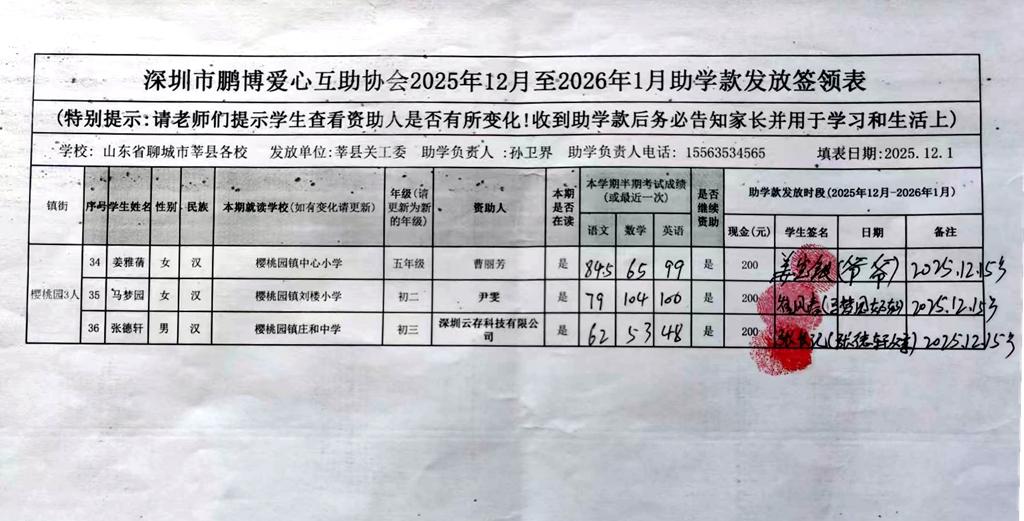 深圳市鹏博爱心互助协会2025年12月至2026年1月助学款发放签领表
(特别提示:请老师们提示学生查看资助人是否有所变化!收到助学款后务必告知家长并用于学习和生活上)
学校: 山东省聊城市莘县各校 发放单位:莘县关工委 助学负责人 :孙卫界 助学负责人电话: 15563534565 填表日期:2025.12.1
镇街 序号 学生姓名 性别 民族 本期就读学校(如有变化请更新) 年级(请更新为新的年级) 资助人 本期是否在读 本学期半期考试成绩(或最近一次) 是否继续资助 助学款发放时段(2025年12月-2026年1月)
语文 数学 英语 现金(元) 学生签名 日期 备注
樱桃园3人
34 姜雅蒨 女 汉 樱桃园镇中心小学 五年级 曹丽芳 是 84.5 65 99 是 200 (爷爷) 2025.12.15号
35 马梦园 女 汉 樱桃园镇刘楼小学 初二 尹雯 是 79 104 100 是 200 2025.12.15号
36 张德轩 男 汉 樱桃园镇庄和中学 初三 深圳云存科技有限公司 是 62 53 48 是 200 2025.12.15号